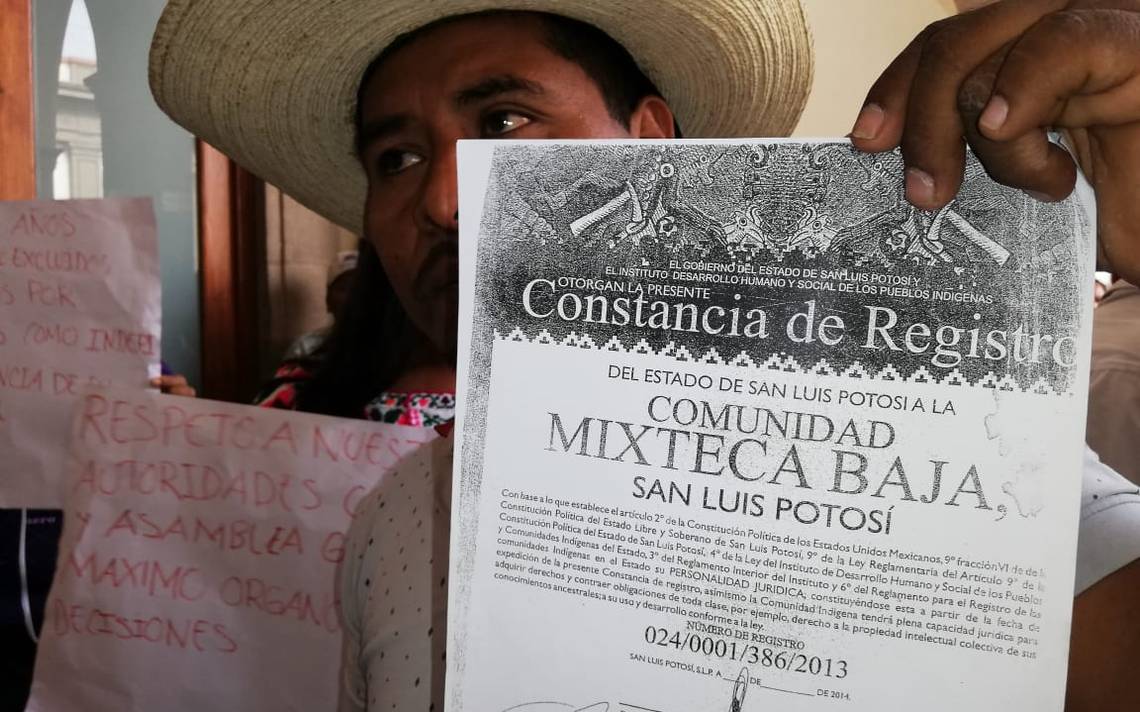 AÑOS
EXCLUIDOS
POR
COMO
DE
RESPETE A
AUTORIDADES
Y ASAMBLEA
MAXIMO ORGANO
DECISIONES
EL GOBIERNO DEL ESTADO DE SAN LUIS POTOSI Y
EL INSTITUTO DESARROLLO HUMANO Y SOCIAL DE LOS PUEBLOS INDIGENAS
OTORGAN LA PRESENTE
Constancia de Registro
DEL ESTADO DE SAN LUIS POTOSI A LA
COMUNIDAD
MIXTECA BAJA,
SAN LUIS POTOSÍ
Con base a lo que establece el artículo 2° de la Constitución Política de los Estados Unidos Mexicanos, 9° fracción VI de de la
Constitución Política del Estado Libre y Soberano de San Luis Potosí, 9° de la Ley Reglamentaria del Artículo 9° de la
Constitución Política del Estado de San Luis Potosí, 4° de la Ley del Instituto de Desarrollo Humano y Social de los Pueblos
y Comunidades Indígenas del Estado, 3° del Reglamento Interior del Instituto y 6° del Reglamento para el Registro de las
comunidades Indígenas en el Estado su PERSONALIDAD JURIDICA, constituyéndose esta a partir de la fecha de
expedición de la presente Constancia de registro, asimismo la Comunidad Indígena tendrá plena capacidad jurídica para
adquirir derechos y contraer obligaciones de toda clase, por ejemplo, derecho a la propiedad intelectual colectiva de sus
conocimientos ancestrales; a su uso y desarrollo conforme a la ley.
NÚMERO DE REGISTRO
024/0001/386/2013
SAN LUIS POTOSÍ, S.L.P. A DE DE 2014.